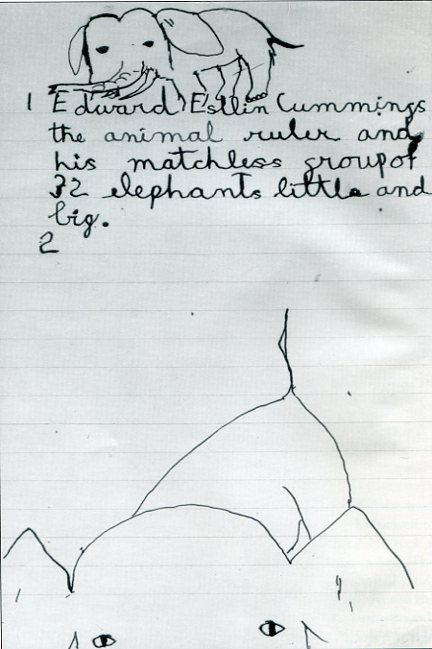 1 Edward Estlin Cummings
the animal ruler and
his matchless group of
32 elephants little and
big.
2